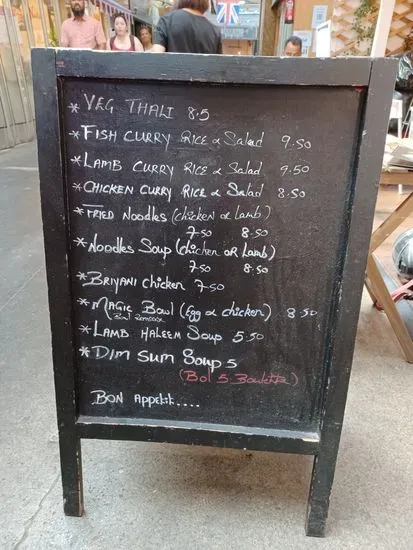 * VEG THALI 8.5
* FISH CURRY RICE & Salad 9.50
* LAMB CURRY RICE & Salad 9.50
* CHICKEN CURRY RICE & Salad 8.50
* FRIED Noodles (chicken or lamb)
7.50 8.50
* Noodles Soup (chicken OR Lamb)
7.50 8.50
* BRIYANI chicken 7.50
* MAGIC Bowl (Egg & chicken) 8.50
* LAMB HALEEM Soup 5.50
* DIM SUM SOUP 5
(Bol 5 Boulette)
BON Appetit....